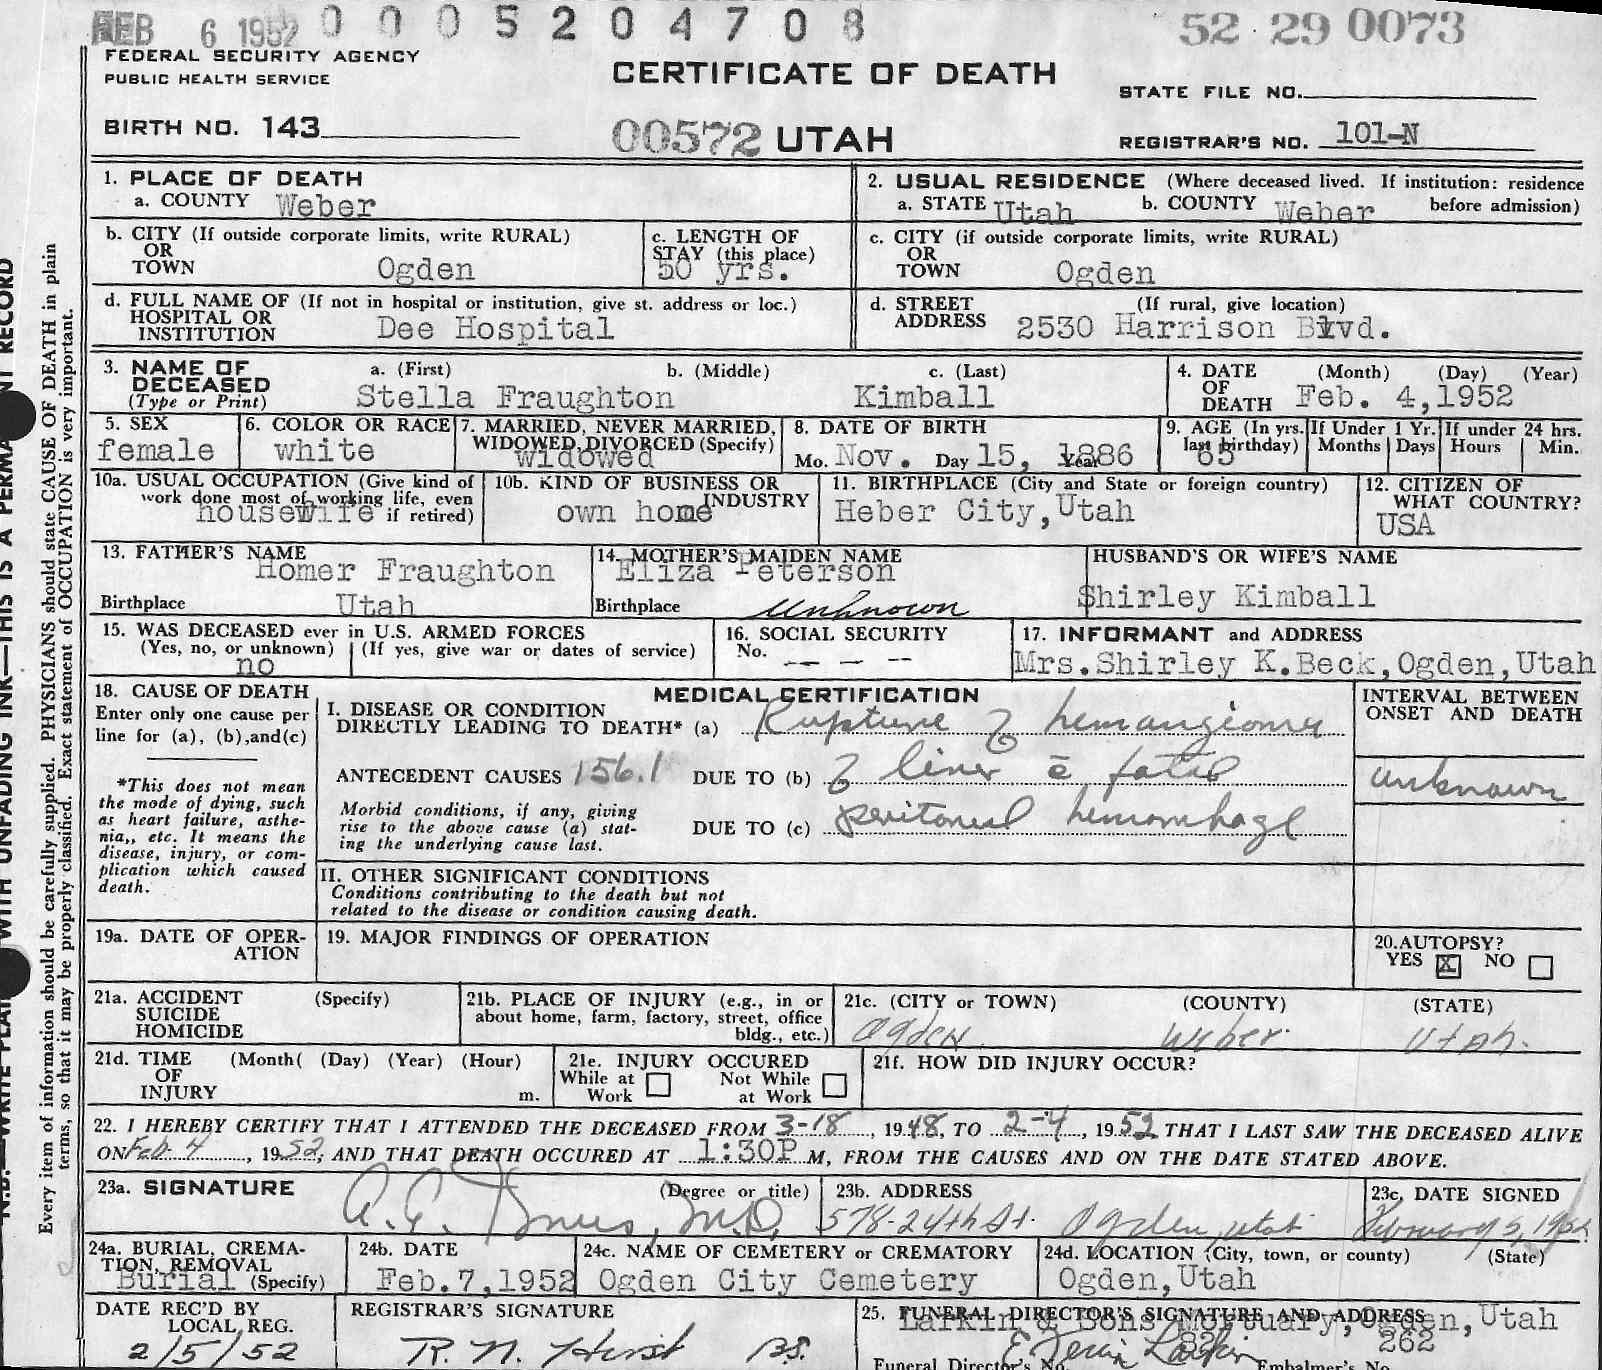 FEB 6 1952 0 0 0 5 2 0 4 7 0 8 52 29 0073
FEDERAL SECURITY AGENCY
PUBLIC HEALTH SERVICE
CERTIFICATE OF DEATH
STATE FILE NO.
BIRTH NO. 143
00572 UTAH
REGISTRAR'S NO. 101-N
1. PLACE OF DEATH
a. COUNTY Weber
2. USUAL RESIDENCE (Where deceased lived. If institution: residence before admission)
a. STATE Utah b. COUNTY Weber
b. CITY (If outside corporate limits, write RURAL)
OR
TOWN Ogden
c. LENGTH OF
STAY (this place)
50 yrs.
c. CITY (if outside corporate limits, write RURAL)
OR
TOWN Ogden
d. FULL NAME OF (If not in hospital or institution, give st. address or loc.)
HOSPITAL OR
INSTITUTION Dee Hospital
d. STREET (If rural, give location)
ADDRESS 2530 Harrison Blvd.
3. NAME OF
DECEASED
(Type or Print)
a. (First) b. (Middle) c. (Last)
Stella Fraughton Kimball
4. DATE (Month) (Day) (Year)
OF
DEATH Feb. 4,1952
5. SEX
female
6. COLOR OR RACE
white
7. MARRIED, NEVER MARRIED,
WIDOWED, DIVORCED (Specify)
widowed
8. DATE OF BIRTH
Mo. Nov. Day 15, Year 1886
9. AGE (In yrs.
last birthday)
65
If Under 1 Yr.
Months Days
If under 24 hrs.
Hours Min.
10a. USUAL OCCUPATION (Give kind of
work done most of working life, even
if retired)
housewife
10b. KIND OF BUSINESS OR
INDUSTRY
own home
11. BIRTHPLACE (City and State or foreign country)
Heber City,Utah
12. CITIZEN OF
WHAT COUNTRY?
USA
13. FATHER'S NAME
Homer Fraughton
Birthplace Utah
14. MOTHER'S MAIDEN NAME
Eliza Peterson
Birthplace Unknown
HUSBAND'S OR WIFE'S NAME
Shirley Kimball
15. WAS DECEASED ever in U.S. ARMED FORCES
(Yes, no, or unknown) (If yes, give war or dates of service)
no
16. SOCIAL SECURITY
No. -- -- --
17. INFORMANT and ADDRESS
Mrs.Shirley K.Beck,Ogden,Utah
18. CAUSE OF DEATH
Enter only one cause per
line for (a), (b),and(c)
*This does not mean
the mode of dying, such
as heart failure, asthe-
nia,, etc. It means the
disease, injury, or com-
plication which caused
death.
MEDICAL CERTIFICATION
I. DISEASE OR CONDITION
DIRECTLY LEADING TO DEATH* (a) Rupture of hemangioma
ANTECEDENT CAUSES 156.1 DUE TO (b) of liver c̄ fatal
Morbid conditions, if any, giving
rise to the above cause (a) stat-
ing the underlying cause last.
DUE TO (c) peritoneal hemorrhage
INTERVAL BETWEEN
ONSET AND DEATH
unknown
II. OTHER SIGNIFICANT CONDITIONS
Conditions contributing to the death but not
related to the disease or condition causing death.
19a. DATE OF OPER-
ATION
19. MAJOR FINDINGS OF OPERATION
20.AUTOPSY?
YES X NO
21a. ACCIDENT (Specify)
SUICIDE
HOMICIDE
21b. PLACE OF INJURY (e.g., in or
about home, farm, factory, street, office
bldg., etc.)
21c. (CITY or TOWN) (COUNTY) (STATE)
Ogden Weber Utah.
21d. TIME (Month( (Day) (Year) (Hour)
OF
INJURY m.
21e. INJURY OCCURED
While at Work Not While at Work
21f. HOW DID INJURY OCCUR?
22. I HEREBY CERTIFY THAT I ATTENDED THE DECEASED FROM 3-18, 1948, TO 2-4, 1952 THAT I LAST SAW THE DECEASED ALIVE
ON Feb. 4, 1952, AND THAT DEATH OCCURED AT 1:30P M, FROM THE CAUSES AND ON THE DATE STATED ABOVE.
23a. SIGNATURE (Degree or title)
M.D.
23b. ADDRESS
578-24th St. Ogden, Utah
23c, DATE SIGNED
February 5, 1952
24a. BURIAL, CREMA-
TION, REMOVAL
Burial (Specify)
24b. DATE
Feb.7,1952
24c. NAME OF CEMETERY or CREMATORY
Ogden City Cemetery
24d. LOCATION (City, town, or county) (State)
Ogden,Utah
DATE REC'D BY
LOCAL REG.
2/5/52
REGISTRAR'S SIGNATURE
R. N. Hirst
25. FUNERAL DIRECTOR'S SIGNATURE AND ADDRESS
Larkin & Sons Mortuary,Ogden,Utah
Funeral Director's No. Embalmer's No. 262
Every item of information should be carefully supplied. PHYSICIANS should state CAUSE OF DEATH in plain
terms, so that it may be properly classified. Exact statement of OCCUPATION is very important.